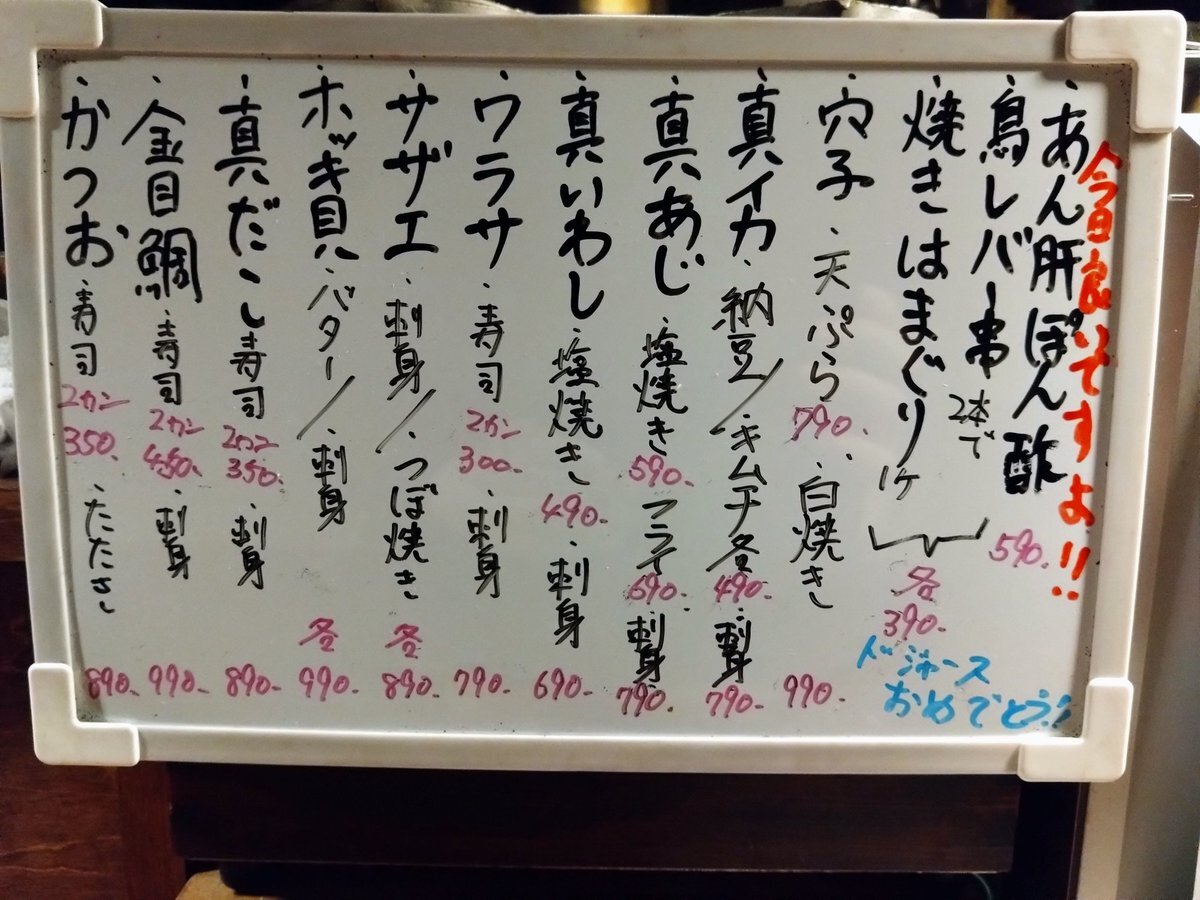 今日良いですよ!!
・あん肝ぽん酢 590-
・鳥レバー串 2本で
・焼きはまぐり 1ケ
各390-
・穴子・天ぷら 790-・白焼き 990-
・真イカ・納豆/・キムチ各490-・刺身 790-
・真あじ・塩焼き 590-フライ 690-・刺身 790-
・真いわし・塩焼き 490-・刺身 690-
・ワラサ・寿司 2カン 300-・刺身 790-
・サザエ・刺身/・つぼ焼き 各890-
・ホッキ貝・バター/・刺身 各990-
・真だこ・寿司 2カン 350-・刺身 890-
・金目鯛・寿司 2カン 450-・刺身 990-
・かつお・寿司 2カン 350-・たたき 890-
ドジャース
おめでとう!!